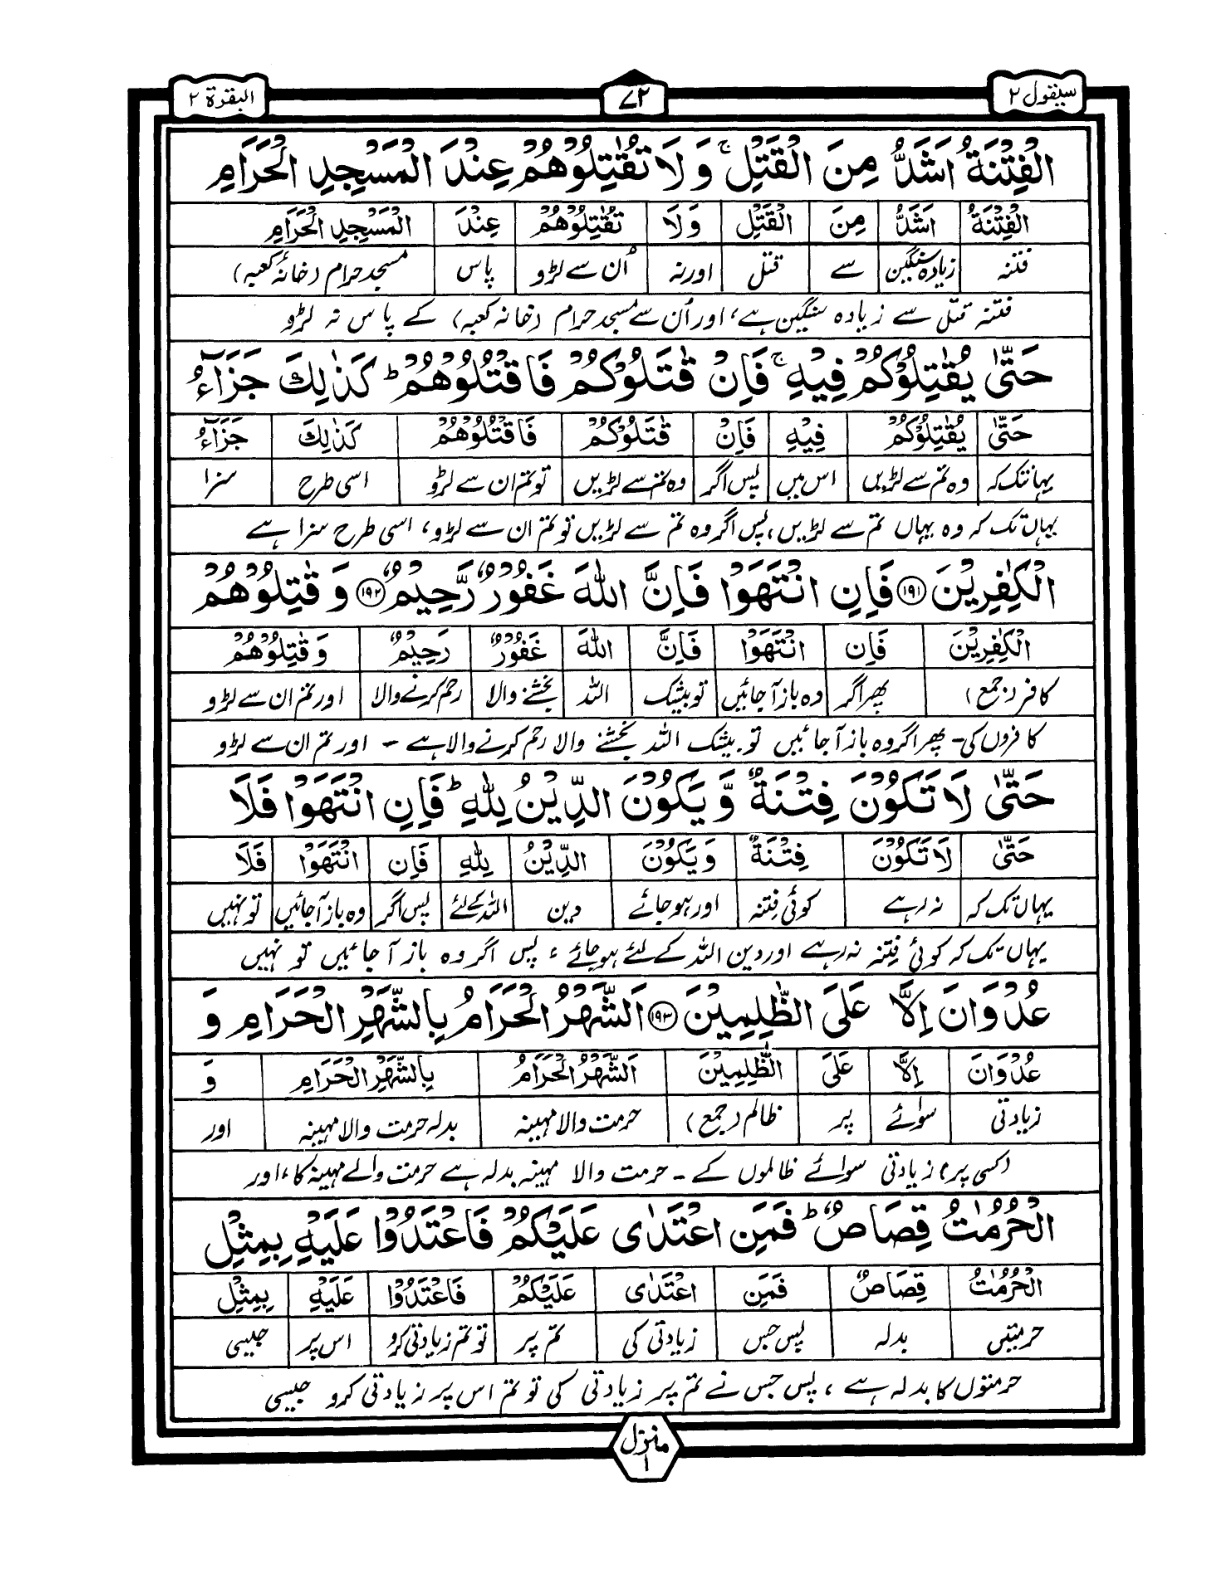 سيقول ٢
٧٢
البقرة ٢
الْفِتْنَةُ اَشَدُّ مِنَ الْقَتْلِ ۚ وَ لَا تُقٰتِلُوْهُمْ عِنْدَ الْمَسْجِدِ الْحَرَامِ
الْفِتْنَةُ اَشَدُّ مِنَ الْقَتْلِ وَ لَا تُقٰتِلُوْهُمْ عِنْدَ الْمَسْجِدِ الْحَرَامِ
فتنہ زیادہ سنگین سے قتل اور نہ اُن سے لڑو پاس مسجد حرام (خانہ کعبہ)
فتنہ قتل سے زیادہ سنگین ہے، اور اُن سے مسجد حرام (خانہ کعبہ) کے پاس نہ لڑو
حَتّٰى يُقٰتِلُوْكُمْ فِيْهِ ۚ فَاِنْ قٰتَلُوْكُمْ فَاقْتُلُوْهُمْ ؕ كَذٰلِكَ جَزَآءُ
حَتّٰى يُقٰتِلُوْكُمْ فِيْهِ فَاِنْ قٰتَلُوْكُمْ فَاقْتُلُوْهُمْ كَذٰلِكَ جَزَآءُ
یہانتک کہ وہ تم سے لڑیں اس میں پس اگر وہ تم سے لڑیں تو تم ان سے لڑو اسی طرح سزا
یہاں تک کہ وہ یہاں تم سے لڑیں، پس اگر وہ تم سے لڑیں تو تم ان سے لڑو، اسی طرح سزا ہے
الْكٰفِرِيْنَ ۝١٩١ فَاِنِ انْتَهَوْا فَاِنَّ اللّٰهَ غَفُوْرٌ رَّحِيْمٌ ۝١٩٢ وَ قٰتِلُوْهُمْ
الْكٰفِرِيْنَ فَاِنِ انْتَهَوْا فَاِنَّ اللّٰهَ غَفُوْرٌ رَحِيْمٌ وَ قٰتِلُوْهُمْ
کافر (جمع) پھر اگر وہ باز آجائیں تو بیشک اللہ بخشنے والا رحم کرنے والا اور تم ان سے لڑو
کافروں کی۔ پھر اگر وہ باز آجائیں تو بیشک اللہ بخشنے والا رحم کرنے والا ہے۔ اور تم ان سے لڑو
حَتّٰى لَا تَكُوْنَ فِتْنَةٌ وَّ يَكُوْنَ الدِّيْنُ لِلّٰهِ ؕ فَاِنِ انْتَهَوْا فَلَا
حَتّٰى لَا تَكُوْنَ فِتْنَةٌ وَ يَكُوْنَ الدِّيْنُ لِلّٰهِ فَاِنِ انْتَهَوْا فَلَا
یہاں تک کہ نہ رہے کوئی فتنہ اور ہو جائے دین اللہ کے لئے پس اگر وہ باز آجائیں تو نہیں
یہاں تک کہ کوئی فتنہ نہ رہے اور دین اللہ کے لئے ہو جائے، پس اگر وہ باز آجائیں تو نہیں
عُدْوَانَ اِلَّا عَلَى الظّٰلِمِيْنَ ۝١٩٣ اَلشَّهْرُ الْحَرَامُ بِالشَّهْرِ الْحَرَامِ وَ
عُدْوَانَ اِلَّا عَلَى الظّٰلِمِيْنَ اَلشَّهْرُ الْحَرَامُ بِالشَّهْرِ الْحَرَامِ وَ
زیادتی سوائے پر ظالم (جمع) حرمت والا مہینہ بدلہ حرمت والا مہینہ اور
(کسی پر) زیادتی سوائے ظالموں کے۔ حرمت والا مہینہ بدلہ ہے حرمت والے مہینہ کا، اور
الْحُرُمٰتُ قِصَاصٌ ؕ فَمَنِ اعْتَدٰى عَلَيْكُمْ فَاعْتَدُوْا عَلَيْهِ بِمِثْلِ
الْحُرُمٰتُ قِصَاصٌ فَمَنِ اعْتَدٰى عَلَيْكُمْ فَاعْتَدُوْا عَلَيْهِ بِمِثْلِ
حرمتیں بدلہ پس جس زیادتی کی تم پر تو تم زیادتی کرو اس پر جیسی
حرمتوں کا بدلہ ہے، پس جس نے تم پر زیادتی کی تو تم اس پر زیادتی کرو جیسی
منزل ١